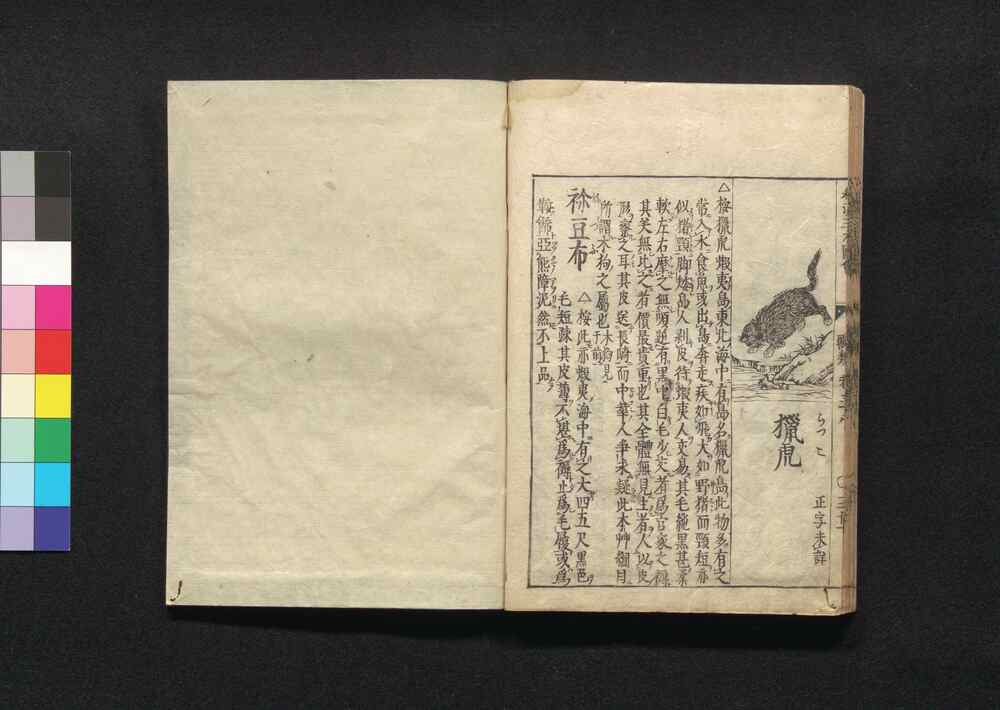 獵虎
らつこ
正字未詳
△按獵虎蝦夷島東北海中有島名獵虎島此物多有之
常入水食魚或出島奔走疾如飛大如野豬而頸短亦
似豬頸脚矮島人剥皮待蝦夷人交易其毛純黒甚柔
軟左右摩之無順逆有黒中白毛少交者爲官家之褥
其美無比之者價最貴重也其全體無見生者人以皮
形察之耳其皮送長崎而中華人爭求疑此本艸綱目
所謂木狗之屬也木狗見于前
袮豆布
△按此亦蝦夷海中有之大四五尺黒色
毛短疎其皮薄不堪爲褥止爲毛履或爲
鞍飾亞熊障泥然不上品